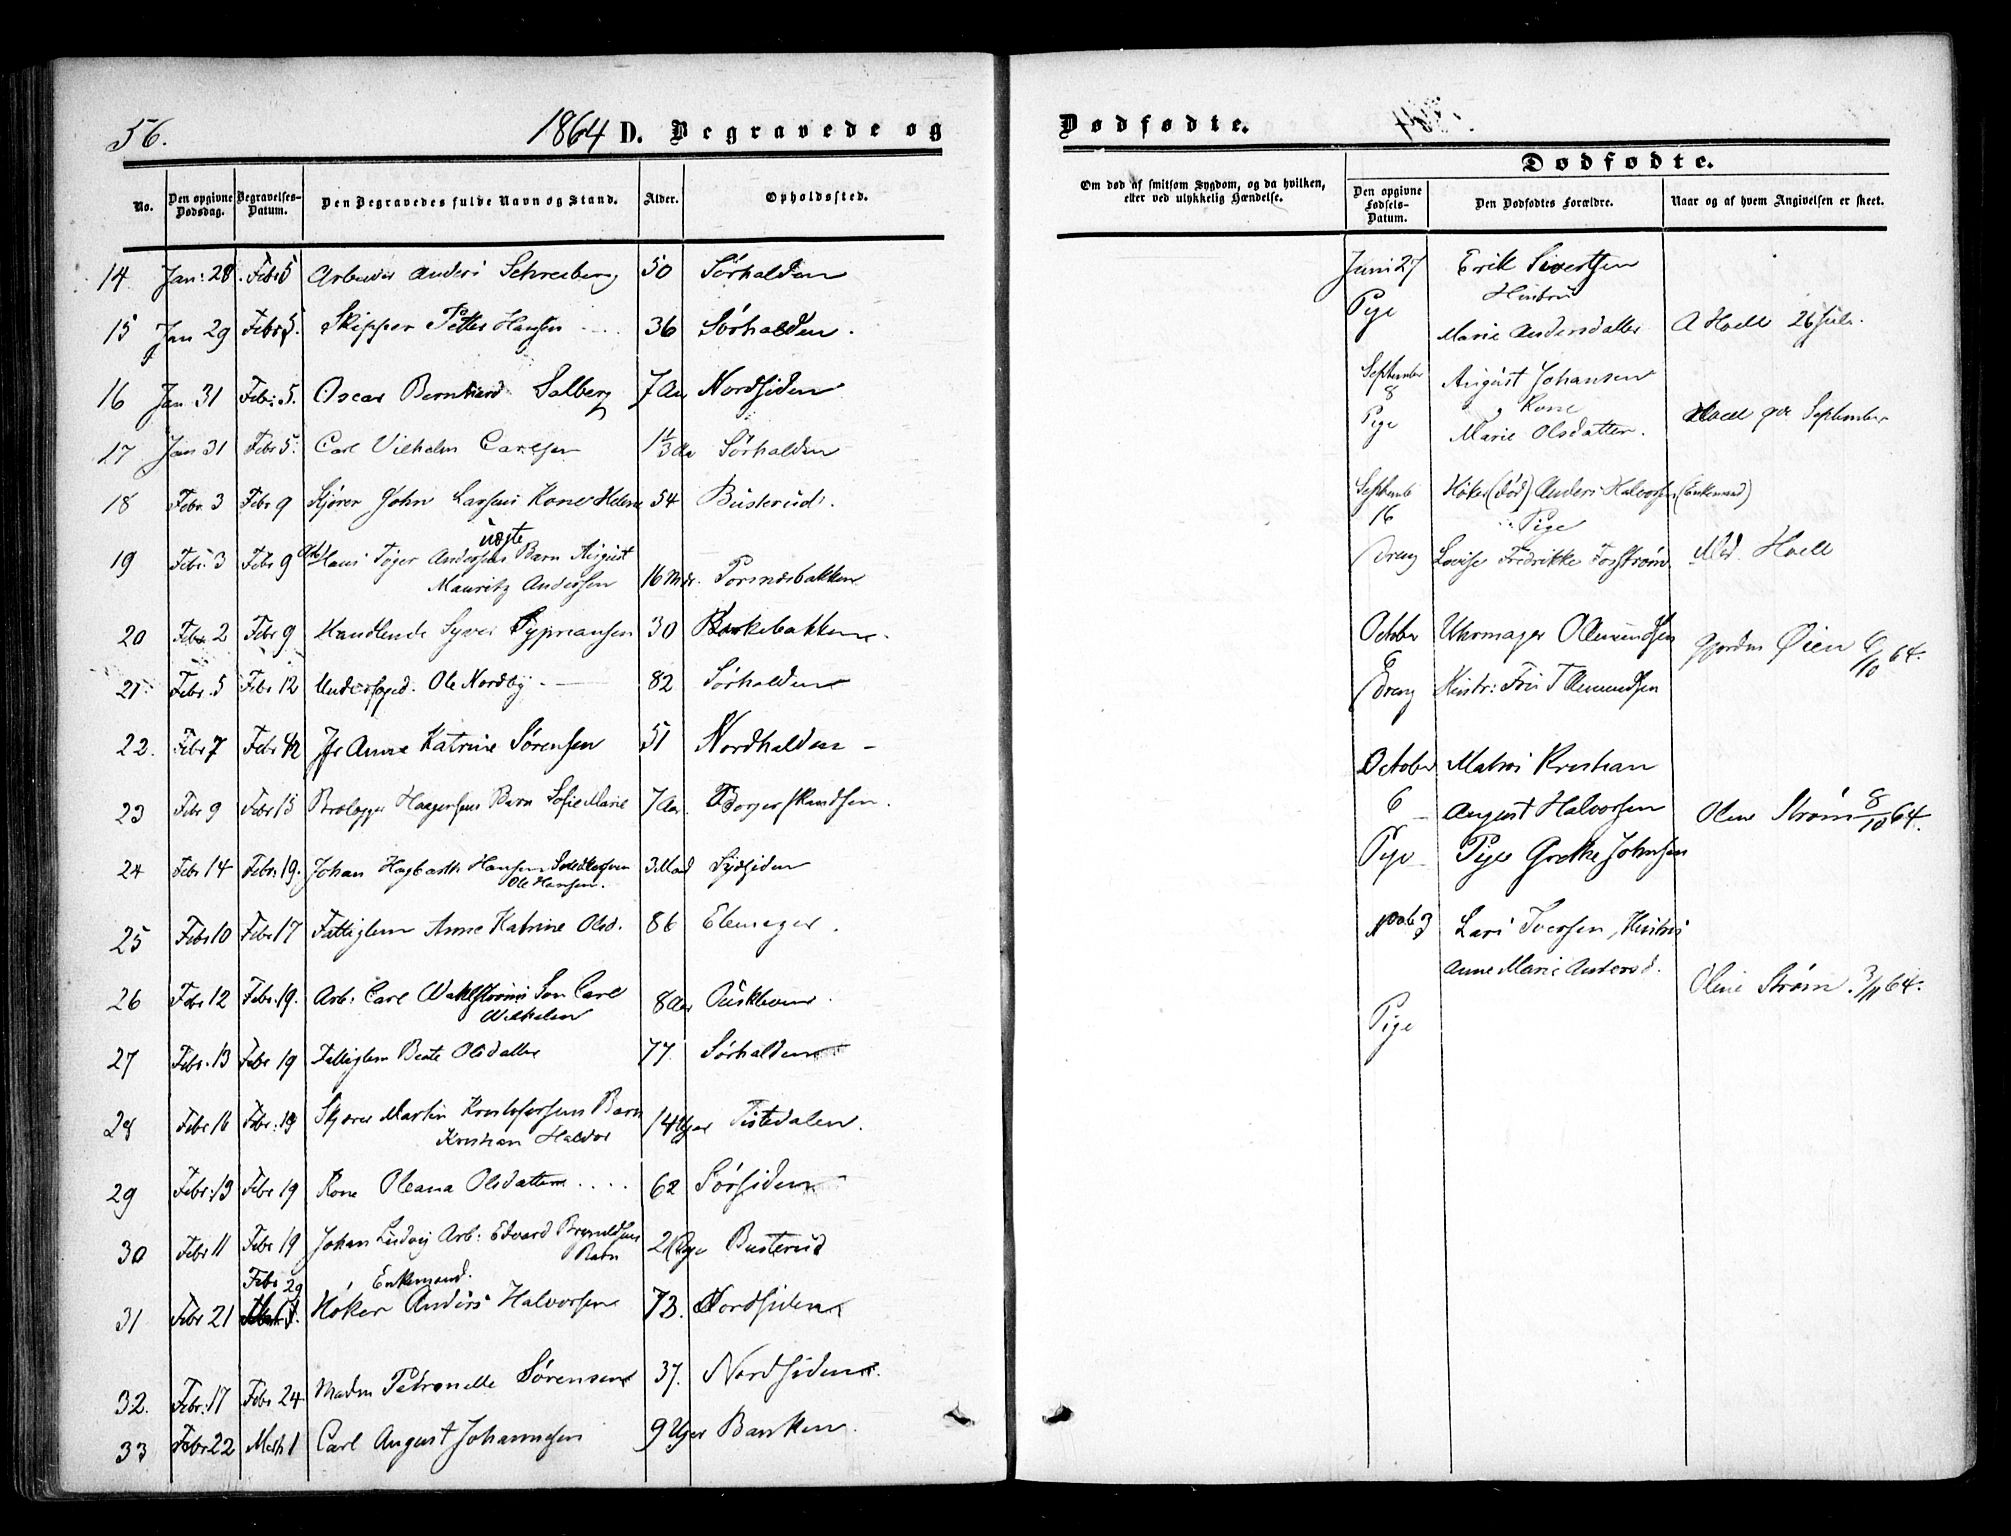 56.
1864 D. Begravede og
No. Den opgivne Dødsdag. Begravelses-Datum. Den Begravedes fulde Navn og Stand. Alder. Opholdssted.
14 Jan: 28 Febr 5 Arbeider Anders Schreiberg 50 Sørhalden
15 Jan 29 Febr 5. Skipper Petter Hansen 36 Sørhalden.
16 Jan 31 Febr: 5. Oscar Bernhard Solberg 7 Aar Nordsiden
17 Jan 31 Febr 5. Carl Vilhelm Carlsen 1 1/3 Aar Sørhalden
18 Febr 3 Febr 9 Kjører John Larsens Kone Helene 54 Busterud.
19 Febr. 3 Febr 9 Hans Tøger Andersens uægte Barn August
Mauritz Andersen 16 Mdr. Torsnæsbakken
20 Febr 2 Febr 9 Handlende Syver Syprеansen 30 Bankebakken.
21 Febr. 5 Febr 12 Underfoged. Ole Nordby 82 Sørhalden
22. Febr 7 Febr 12 Anne Katrine Sørensen 51 Nordhalden
23 Febr 9 Febr 15 Brolægger Haagensens Barn Sofie Marie 7 Aar. Borgerskandsen.
24 Febr 14 Febr. 19. Johan Hagbarth Hansen
Ole Hansen. 3 Maad Sydsiden
25 Febr 10 Febr 17 Fattiglem Anne Katrine Olsd. 86 Elemager.
26 Febr 12 Febr. 19. Arb: Carl Wahlstrøms Søn Carl
Wilhelm 8 Aar
27 Febr. 13 Febr 19 Fattiglem Beate Olsdatter 77. Sørhalden
28 Febr 16 Febr. 19 Skjærer Martin Kristofersens Barn
Kristian Haldor 14 Uger Tistedalen.
29 Febr. 13 Febr 19 Kone Oleana Olsdatter 62 Sørsiden
30 Febr 11 Febr 19 Johan Ludvig Arb: Edvard Brynildsens
Barn 2 Uger Busterud
Febr 29 Enkemand.
31 Febr 21 Høker Anders Halvorsen 73. Nordsiden
32. Febr. 17 Febr 24 Madm Petronelle Sørensen 37. Nordsiden.
33 Febr 22 Marts 1 Carl August Johannesen 9 Uger Banken.
Dødfødte.
Dødfødte.
Om død af smitsom Sygdom, og da hvilken, eller ved ulykkelig Hændelse. Den opgivne Fødsels-Datum. Den Dødfødtes Forældre. Naar og af hvem Angivelsen er skeet.
Juni 27 Erik Sivertsen
Hustru
Pige Marie Andersdatter A Hoell 26 Juli.
September 8 August Johansen
Kone
Pige Marie Olsdatter. Hoell September
Septembr 16 Høker (død) Anders Halvorsen (Enkemand)
Pige
Dreng Lovise Fredrikke Forstrøm Md. Hoell
October 6 Uhrmager O Amundsen Gjordm Øien 6/10 64.
Dreng Hustr: Fru T Amundsen
October Matros Kristian
6 August Halvorsen Oline Strøm 8/10 64.
Pige Pige Grethe Johnsen
Novb 3 Lars Iversen, Hustru
Anne Marie Andersd. Oline Strøm. 3/11 64.
Pige